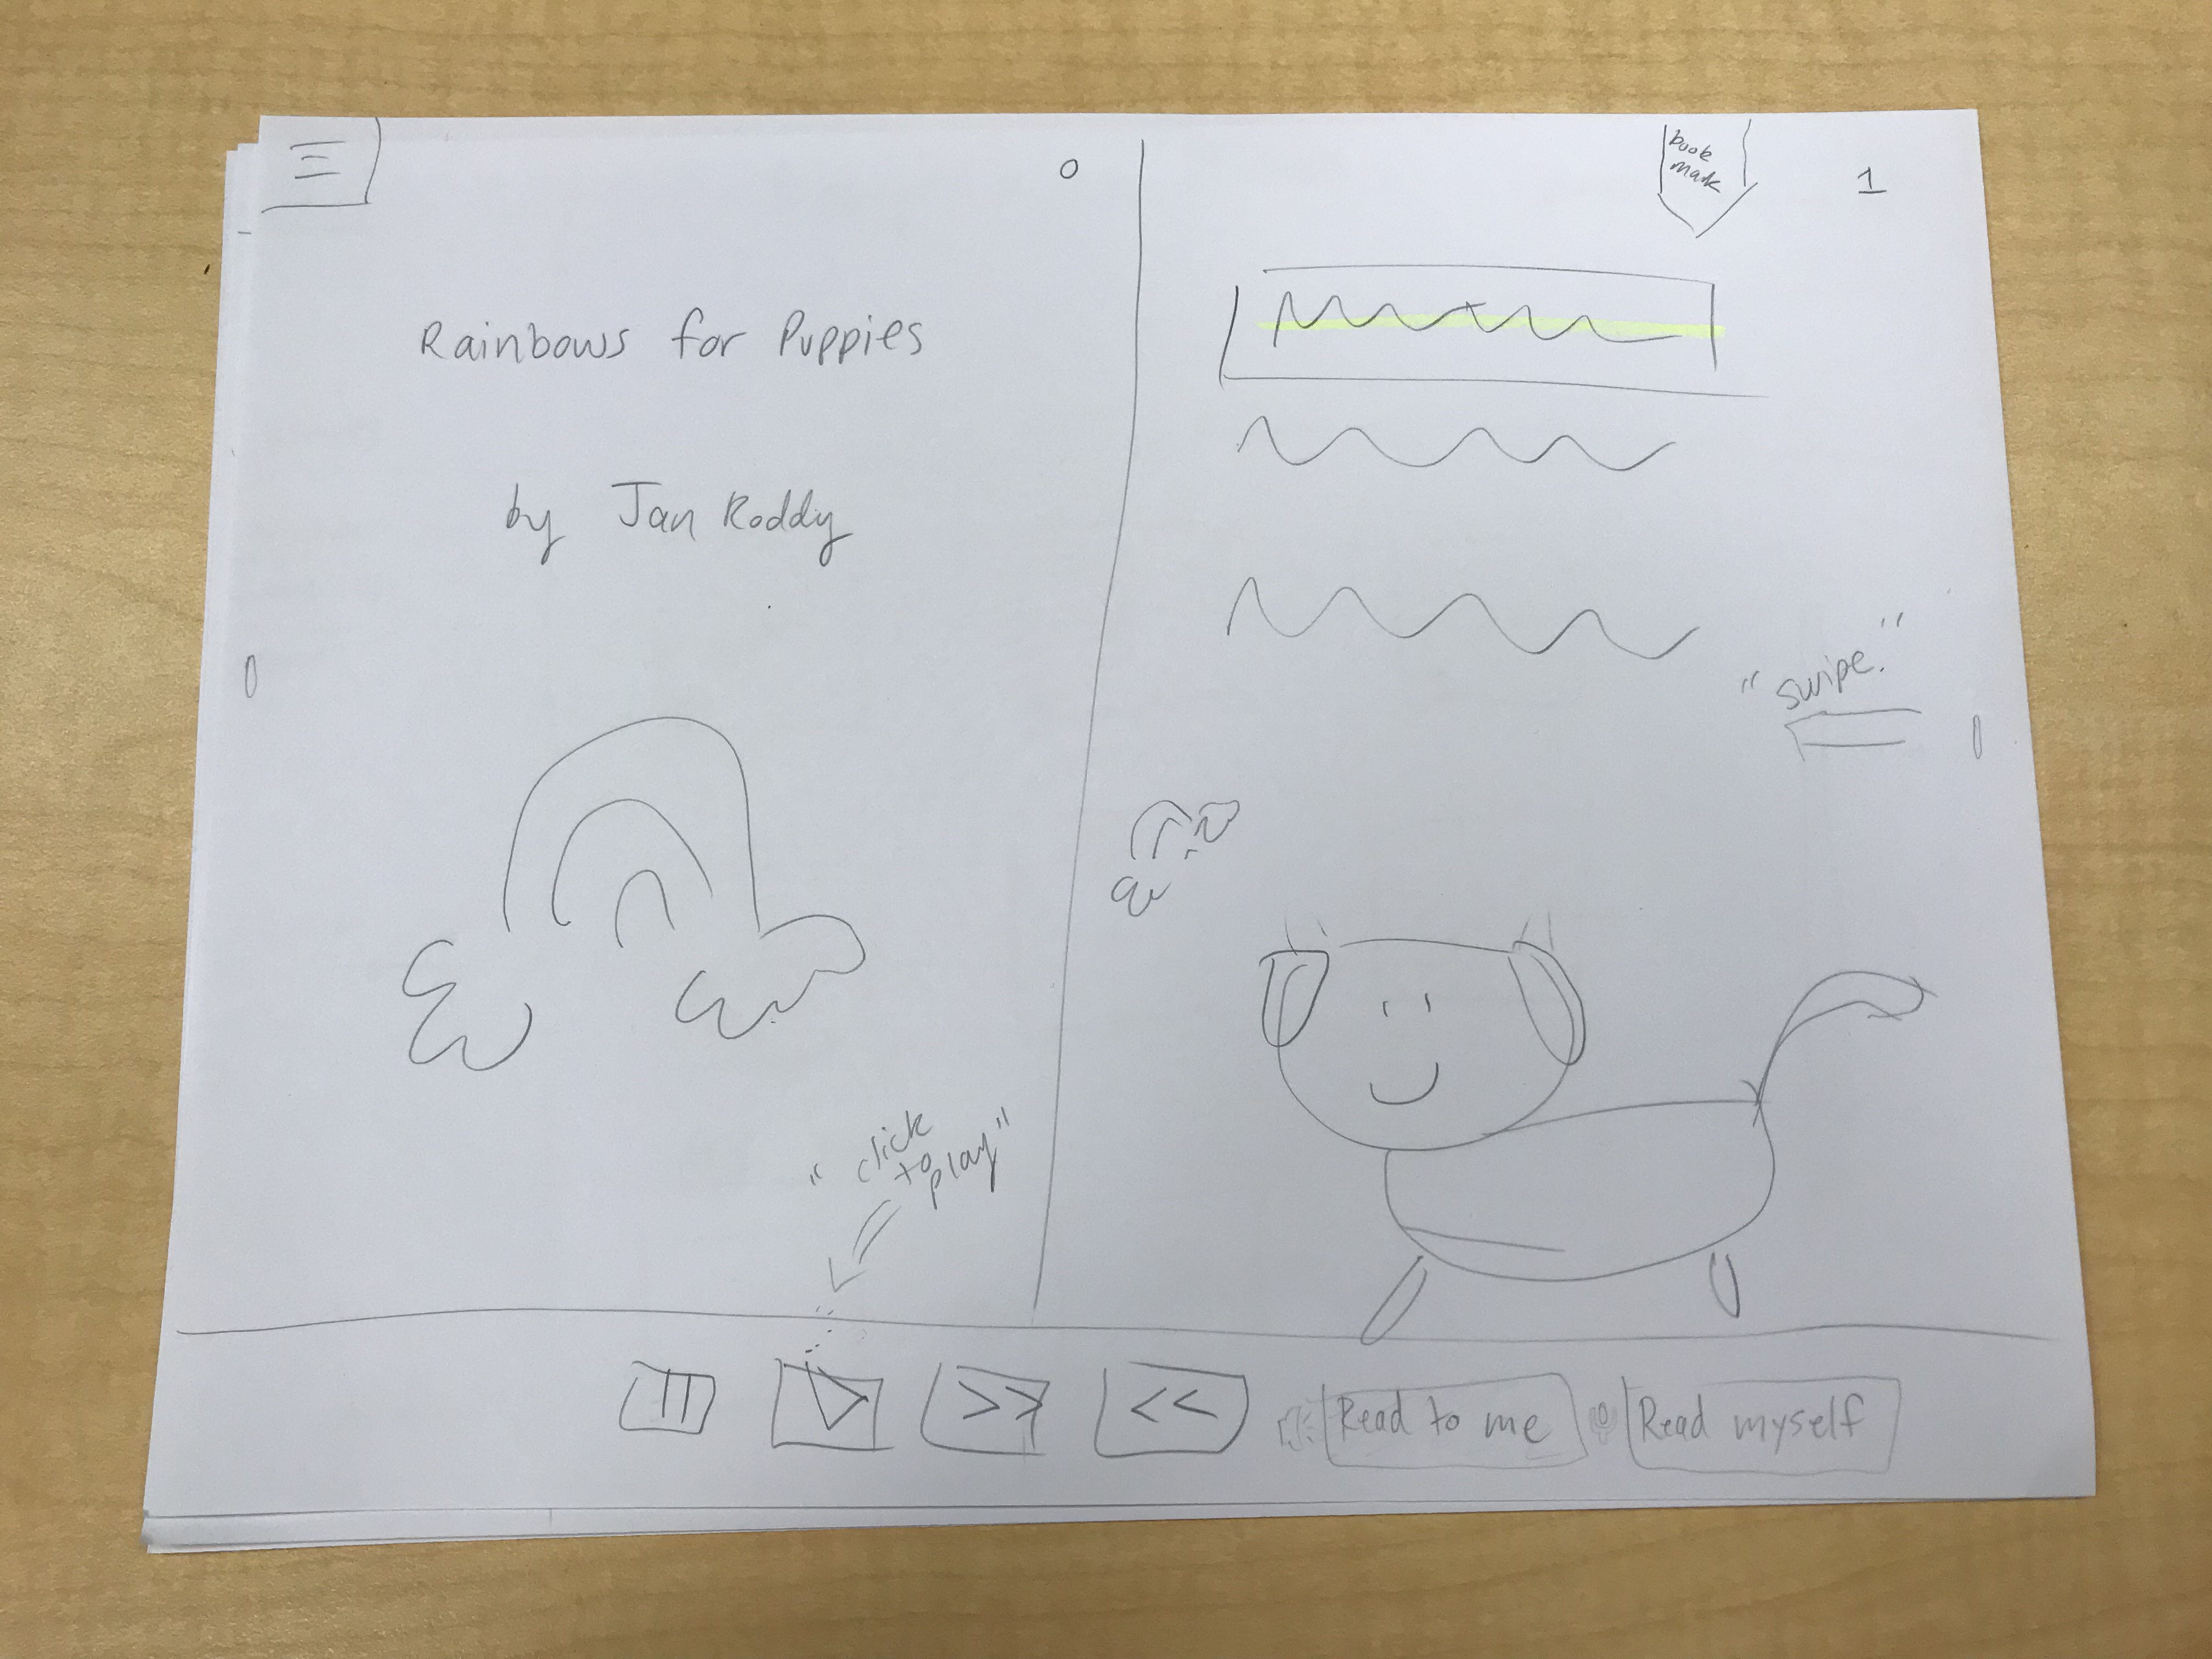 0
Rainbows for Puppies
by Jan Roddy
"click
to
play"
book
mark
1
"swipe."
Read to me
Read myself